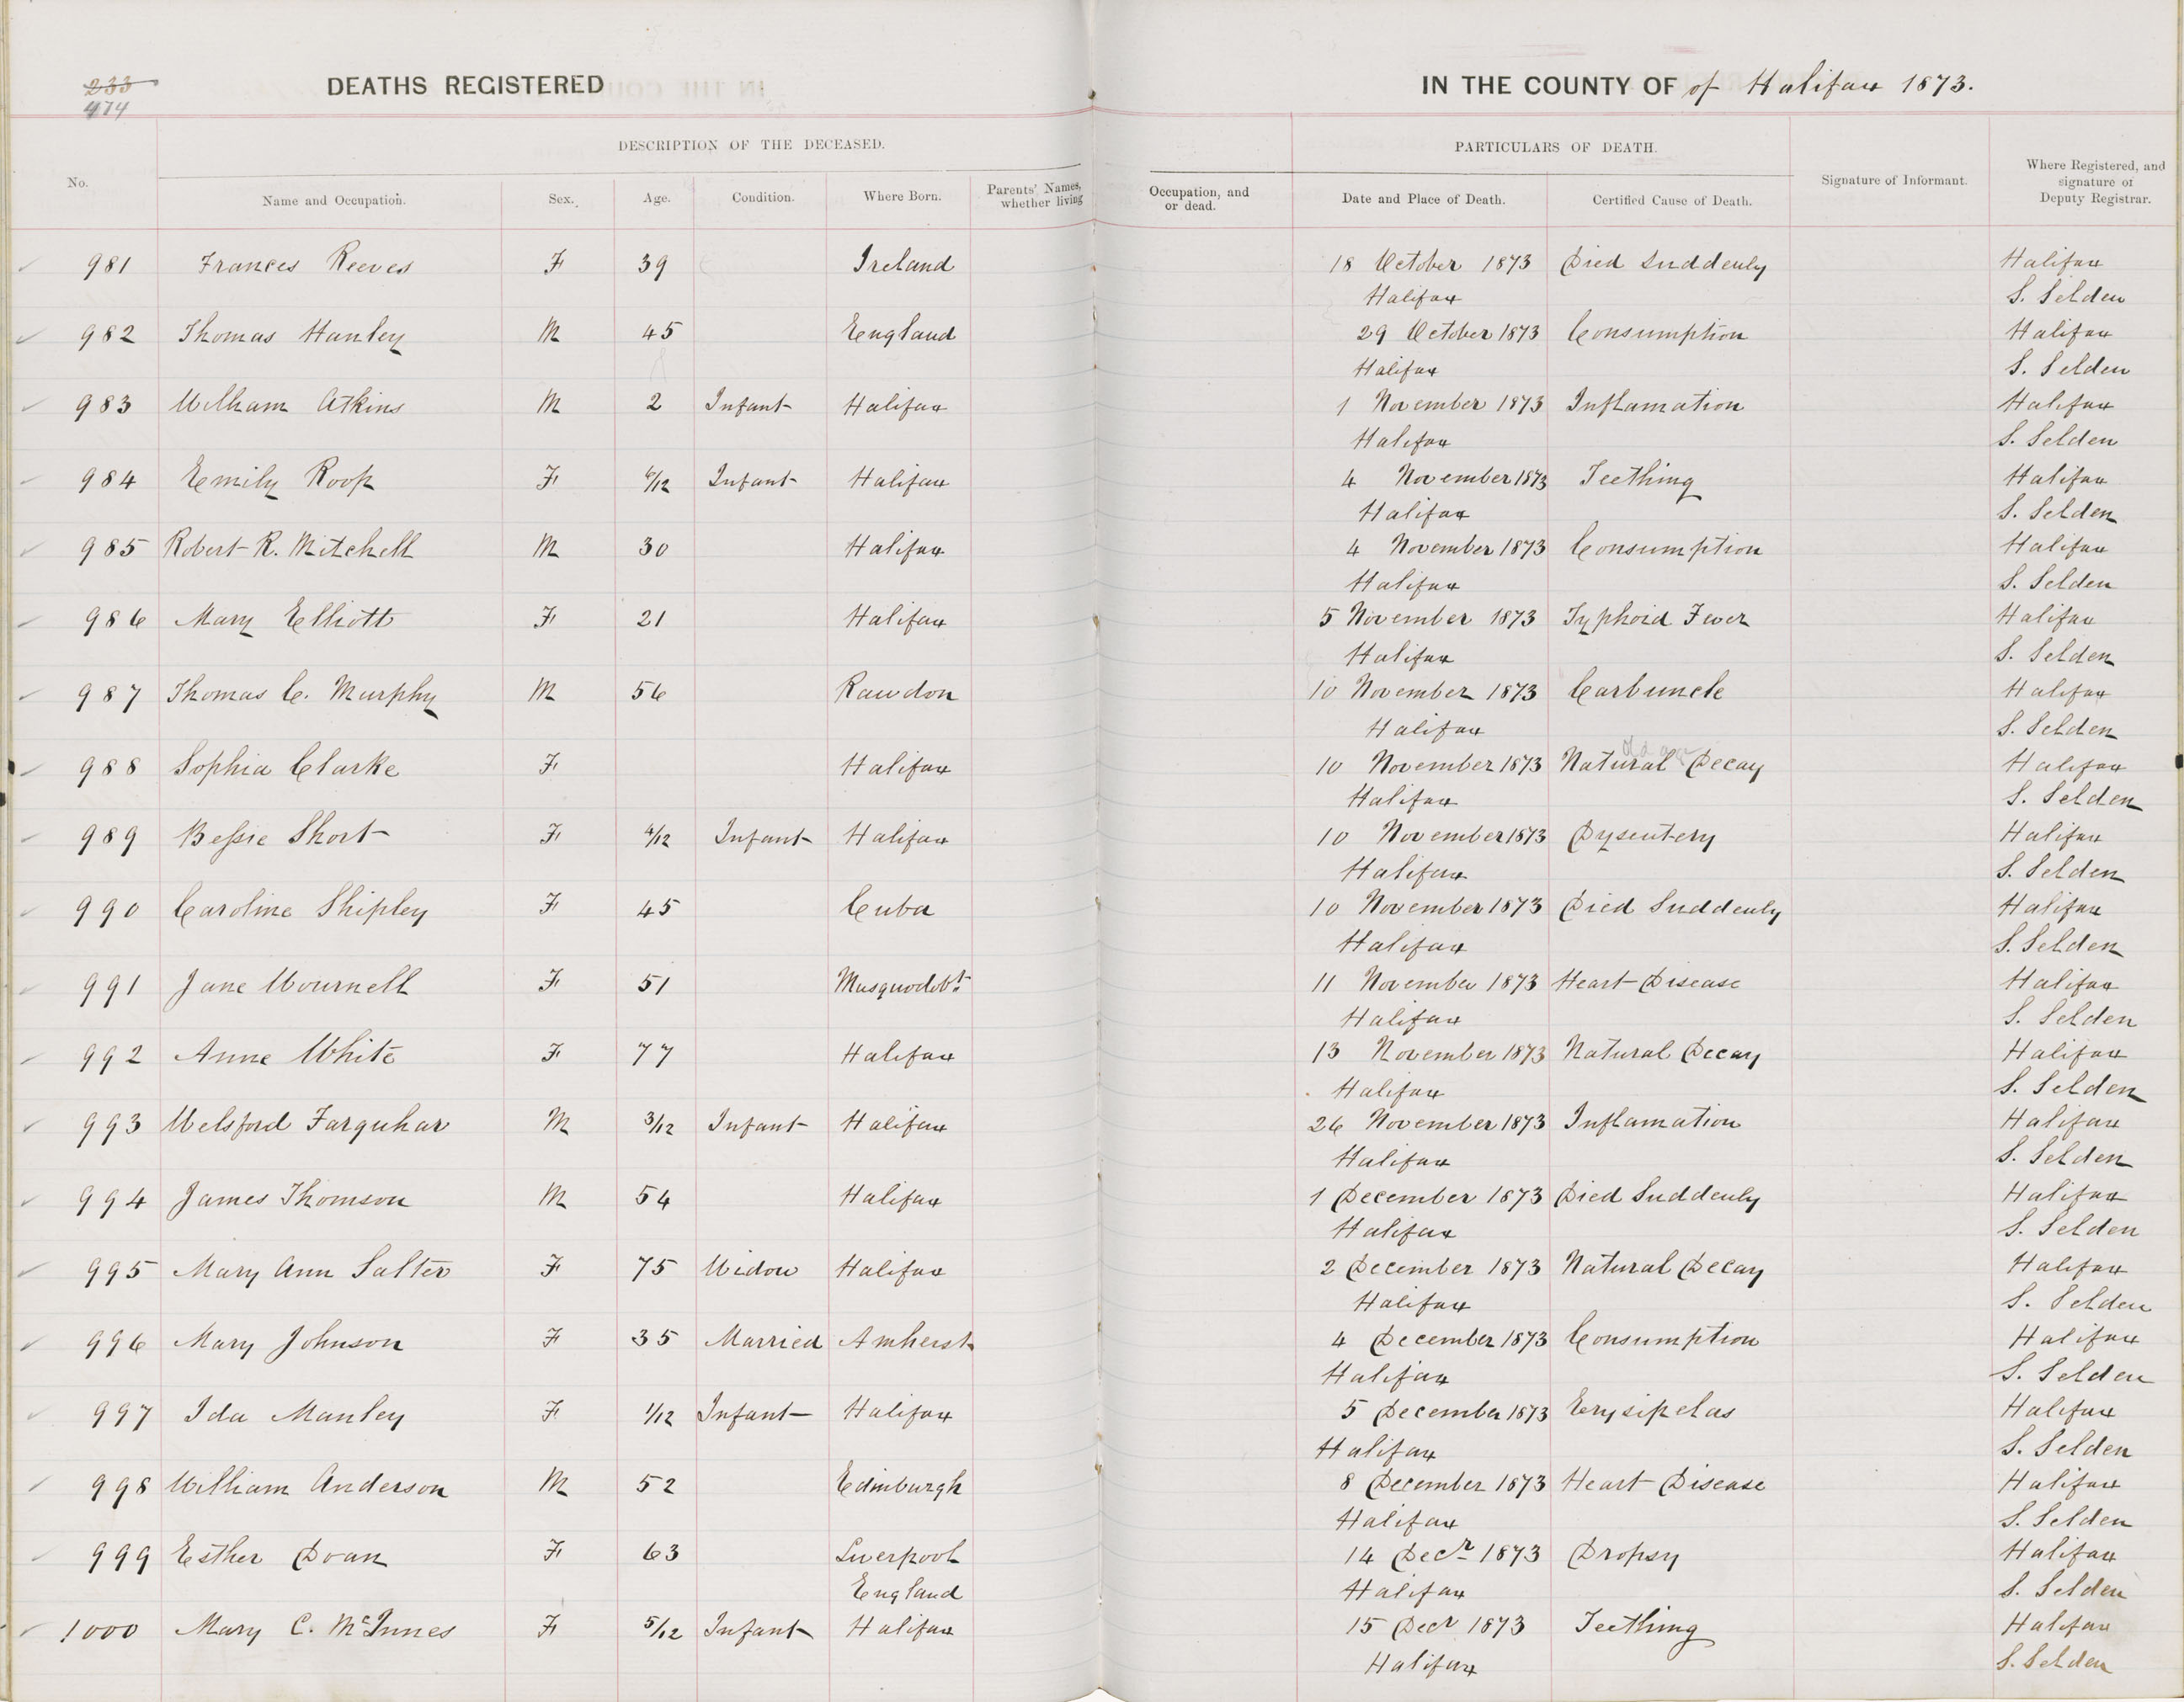 233
474
DEATHS REGISTERED
IN THE COUNTY OF of Halifax 1873.
DESCRIPTION OF THE DECEASED.
PARTICULARS OF DEATH.
No.
Name and Occupation.
Sex.
Age.
Condition.
Where Born.
Parents' Names, whether living
Occupation, and or dead.
Date and Place of Death.
Certified Cause of Death.
Signature of Informant.
Where Registered, and signature of Deputy Registrar.
981 Frances Reeves F 39 Ireland 18 October 1873 Died Suddenly Halifax
Halifax S. Selden
982 Thomas Hanley M 45 England 29 October 1873 Consumption Halifax
Halifax S. Selden
983 William Atkins M 2 Infant Halifax 1 November 1873 Inflamation Halifax
Halifax S. Selden
984 Emily Roop F 6/12 Infant Halifax 4 November 1873 Teething Halifax
Halifax S. Selden
985 Robert R. Mitchell M 30 Halifax 4 November 1873 Consumption Halifax
Halifax S. Selden
986 Mary Elliott F 21 Halifax 5 November 1873 Typhoid Fever Halifax
Halifax S. Selden
987 Thomas C. Murphy M 56 Rawdon 10 November 1873 Carbuncle Halifax
Halifax S. Selden
Old age
988 Sophia Clarke F Halifax 10 November 1873 Natural Decay Halifax
Halifax S. Selden
989 Bessie Short F 4/12 Infant Halifax 10 November 1873 Dysentery Halifax
Halifax S. Selden
990 Caroline Shipley F 45 Cuba 10 November 1873 Died Suddenly Halifax
Halifax S. Selden
991 Jane Wournell F 51 Musquodobt. 11 November 1873 Heart Disease Halifax
Halifax S. Selden
992 Anne White F 77 Halifax 13 November 1873 Natural Decay Halifax
Halifax S. Selden
993 Welsford Farquhar M 3/12 Infant Halifax 26 November 1873 Inflamation Halifax
Halifax S. Selden
994 James Thomson M 54 Halifax 1 December 1873 Died Suddenly Halifax
Halifax S. Selden
995 Mary Ann Salter F 75 Widow Halifax 2 December 1873 Natural Decay Halifax
Halifax S. Selden
996 Mary Johnson F 35 Married Amherst 4 December 1873 Consumption Halifax
Halifax S. Selden
997 Ida Manley F 1/12 Infant Halifax 5 December 1873 Erysipelas Halifax
Halifax S. Selden
998 William Anderson M 52 Edinburgh 8 December 1873 Heart Disease Halifax
Halifax S. Selden
999 Esther Doan F 63 Liverpool 14 Decr 1873 Dropsy Halifax
England Halifax S. Selden
1000 Mary C. McInnes F 5/12 Infant Halifax 15 Decr 1873 Teething Halifax
Halifax S. Selden